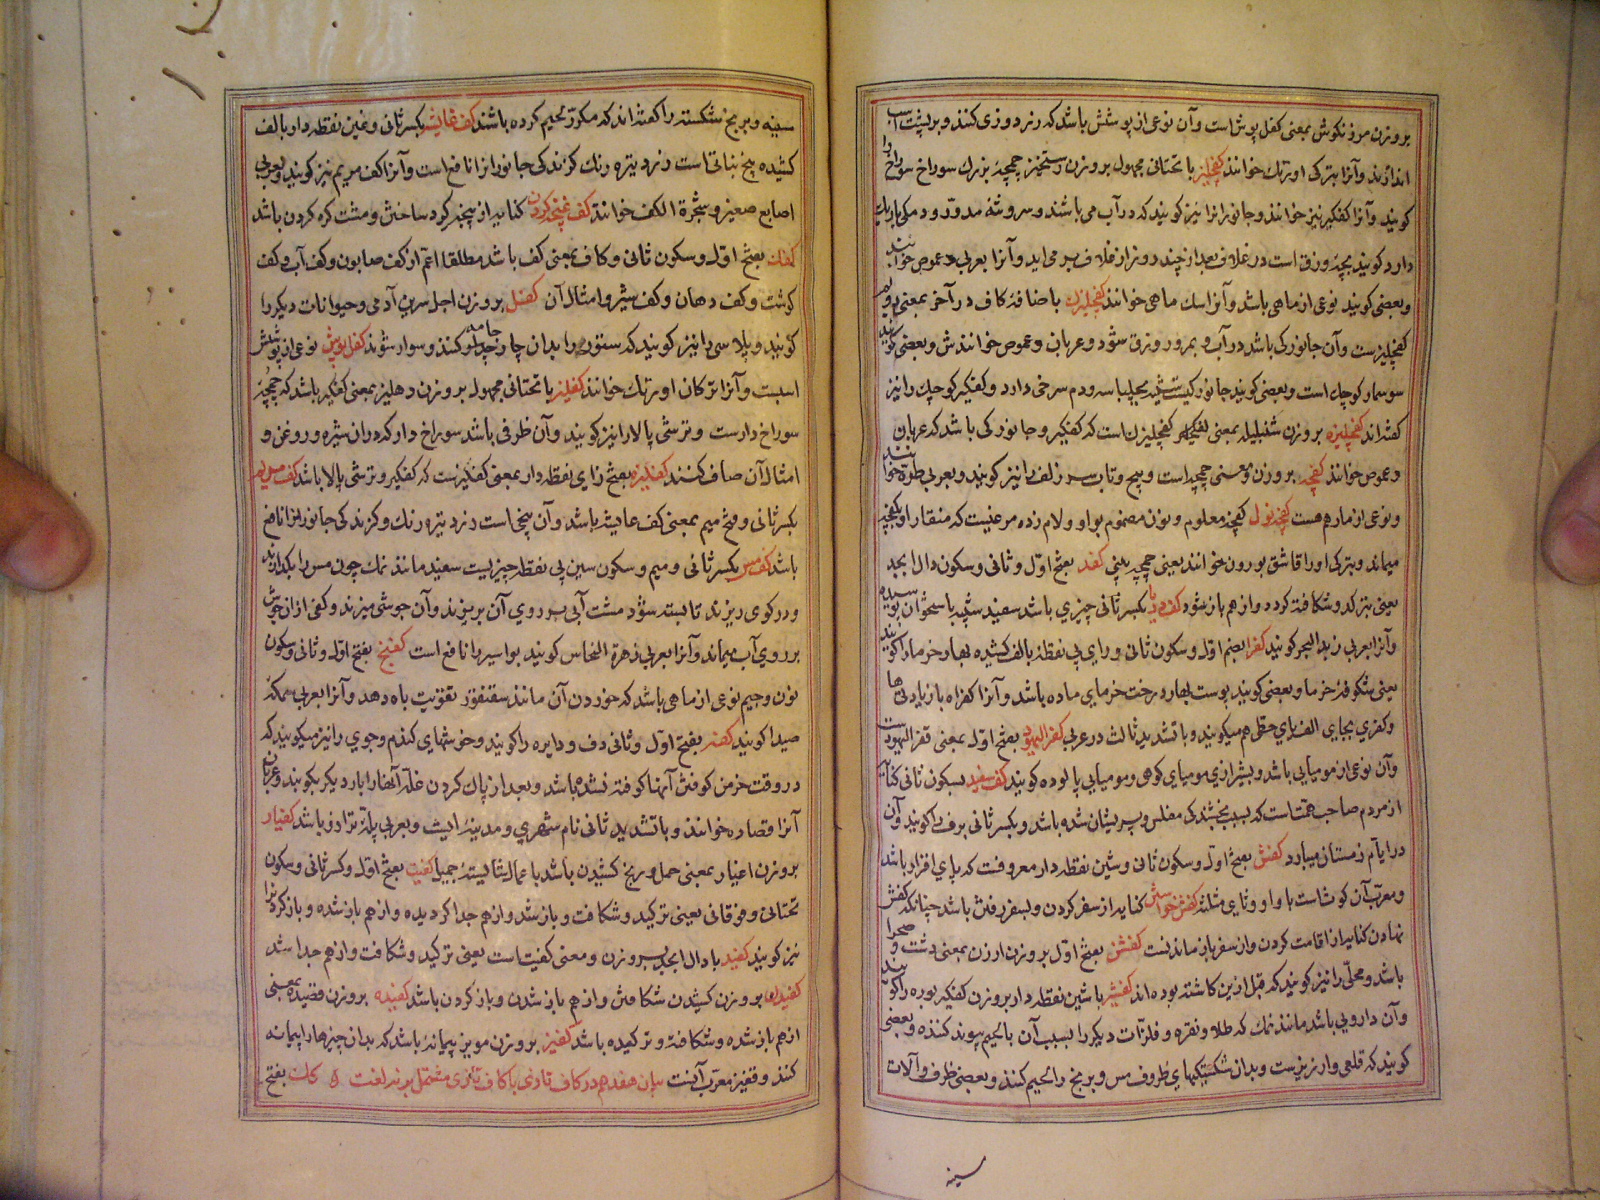 بروزن مرزنکوش بمعنی کفل پوش است وآن نوعی از پوشش باشد که زر دوزی کنند و بر پشت اسب
اندازند وآنرا بترکی اورتک خوانند کفچلیز با تحتانی مجهول بروزن رستخیز چمچهٔ بزرک سوراخ سوراخ را
کویند وآنرا کفکیر نیز خوانند و جانورانرا نیز کویند که در آب می باشند و سر و تنهٔ مدوّر و دمکی باریک
دارد کویند بچهٔ وزق است در غلاف بعد از چند روز از غلاف بر می آید وآنرا بعربی دعموص خوانند
وبعضی کویند نوعی از ماهی باشد وآنرا سک ماهی خوانند کفچلیزک باضافهٔ کاف در آخر بمعنی دویم
کفچلیزست وآن جانورکی باشد در آب و بمرور وزق شود و عربان دعموص خوانندش وبعضی کویند
سوسمار کوچک است وبعضی کویند جانورکیست شبیه بچلپاسه و دم سرخی دارد و کفکیر کوچک را نیز
کفته اند کفچلیزه بروزن شنبلیله بمعنی کفچلیزک است که کفکیر و جانورکی باشد که عربان
دعموص خوانند کفچه بروزن و معنی چمچه است و پیچ و تاب سر زلف را نیز کویند و بعربی طره خوانند
و نوعی از مار هم هست کفچه نول کفچه معلوم و نون مضموم بواو و لام زده مرغیست که منقار او بکفچه
میماند و بترکی اورا قاشق بورون خوانند یعنی چمچه بینی کفد بفتح اوّل و ثانی و سکون دال ابجد
یعنی بترکد و شکافته کردد و از هم باز شود کف دریا بکسر ثانی چیزی باشد سفید شبیه باستخوان پوسیده
وآنرا بعربی زبد البحر کویند کفرا بضم اوّل و سکون ثانی و رای بی نقطه بالف کشیده بهار خرما را کویند
یعنی شکوفهٔ خرما و بعضی کویند پوست بهار درخت خرمای ماده باشد وآنرا کفراه بازیادتی ها
و کفری بجای الف یای حطی هم میکویند و با تشدید ثالث در عربی کفر الیهود بفتح اوّل بمعنی قفر الیهودست
وآن نوعی از مومیایی باشد و بشیرازی مومیای کوهی و مومیایی پالوده کویند کف سفید بسکون ثانی کنایه
از مردم صاحب همت است که بسبب بخشندکی مفلس و پریشان شده باشد و بکسر ثانی برف را کویند وآن
در ایّام زمستان میبارد کفش بفتح اوّل و سکون ثانی و شین نقطه دار معروفست که پای افزار باشد
و معرّب آن کوث است با واو و ثای مثلثه کفش خواستن کنایه از سفر کردن و بسفر رفتن باشد چنانکه کفش
نهادن کنایه از اقامت کردن و از سفر باز ماندنست کفشن بفتح اوّل بروزن ارزن بمعنی دشت و صحرا
باشد و محلّی را نیز کویند که قبل ازین کاشته بوده اند کفشیر با شین نقطه دار بروزن کفکیر بوره را کویند
وآن داروییی باشد مانند نمک که طلا و نقره و فلزّات دیکر را بسبب آن بالحیم پیوند کنند و بعضی
کویند که قلعی و ارزیزست و بدان شکستکیهای ظروف مس و برنج را لحیم کنند و بعضی ظروف و آلات
سینه
سینه و برنج شکسته را کفته اند که مکرّر لحیم کرده باشند کف عایشه بکسر ثانی و عین بی نقطه دار بالف
کشیده بیخ نباتی است زرد تیره رنک کزندکی جانورانرا نافع است وآنرا کف مریم نیز کویند و بعربی
اصابع صفر و شجرة الکف خوانند کف غنچه کردن کنایه از پنجه کرد ساختن و مشت کره کردن باشد
کفک بفتح اوّل و سکون ثانی و کاف بمعنی کف باشد مطلقا اعم از کف صابون و کف آب و کف
کوشت و کف دهان و کف شیر و امثال آن کفل بروزن اجل سرین آدمی و حیوانات دیکر را
کویند و پلاسی را نیز کویند که ستور را بدان چارجامه کنند و سوار شوند کفل پوش نوعی از پوشش
اسبست وآنرا ترکان اورتک خوانند کفلیز با تحتانی مجهول بروزن دهلیز بمعنی کفکیر باشد که چمچهٔ
سوراخ دارست و ترشی پالا را نیز کویند وآن ظرفی باشد سوراخ دار که در ان شیره و روغن و
امثال آن صاف کنند کفلیزه بفتح زای نقطه دار بمعنی کفلیزست که کفکیر و ترشی پالا باشد کف مریم
بکسر ثانی و فتح میم بمعنی کف عایشه باشد وآن بیخی است زرد تیره رنک و کزندکی جانورانرا نافع
باشد کف مس بکسر ثانی و میم و سکون سین بی نقطه چیزیست سفید مانند نمک چون مس را بکدازند
و در کوی ریزند تا بسته شود مشت آبی بر روی آن بریزند وآن جوشی میزند و کفی از ان جوش
بر روی آب میماند وآنرا بعربی زهرة النحاس کویند بواسیر را نافع است کفنج بفتح اوّل و ثانی و سکون
نون و جیم نوعی از ماهی باشد که خوردن آن مانند سقنقور تقویت باه دهد وآنرا بعربی سمکهٔ
صیدا کویند کفه بفتح اوّل و ثانی دف و دایره را کویند و خوشهای کندم و جوی را نیز میکویند که
در وقت خرمن کوفتن آنها کوفته نشده باشد و بعد از پاک کردن غلّه آنهارا بار دیکر بکوبند و عربان
آنرا قصاره خوانند و با تشدید ثانی نام شهری و مدینهٔ ایست و بعربی پلهٔ ترازو باشد کفیار
بروزن اغیار بمعنی حمل و رنج کشیدن باشد با عمال شایسته جمیل کفیت بفتح اوّل و کسر ثانی و سکون
تحتانی و فوقانی یعنی ترکید و شکافت و باز شد و از هم جدا کردیده و از هم باز شده و باز کرد را
نیز کویند کفید با دال ابجد بروزن و معنی کفیت است یعنی ترکید و شکافت و از هم جدا شد
کفیدن بروزن کشیدن شکافتن و از هم باز شدن و باز کردن باشد کفیده بروزن قصیده بمعنی
از هم باز شده و شکافته و ترکیده باشد کفیز بروزن مویز پیمانهٔ باشد که بدان چیزهارا پیمانه
کنند و قفیز معرّب آنست بیان هفدهم در کاف تازی با کاف تازی مشتمل بر ند لغت کک بفتح